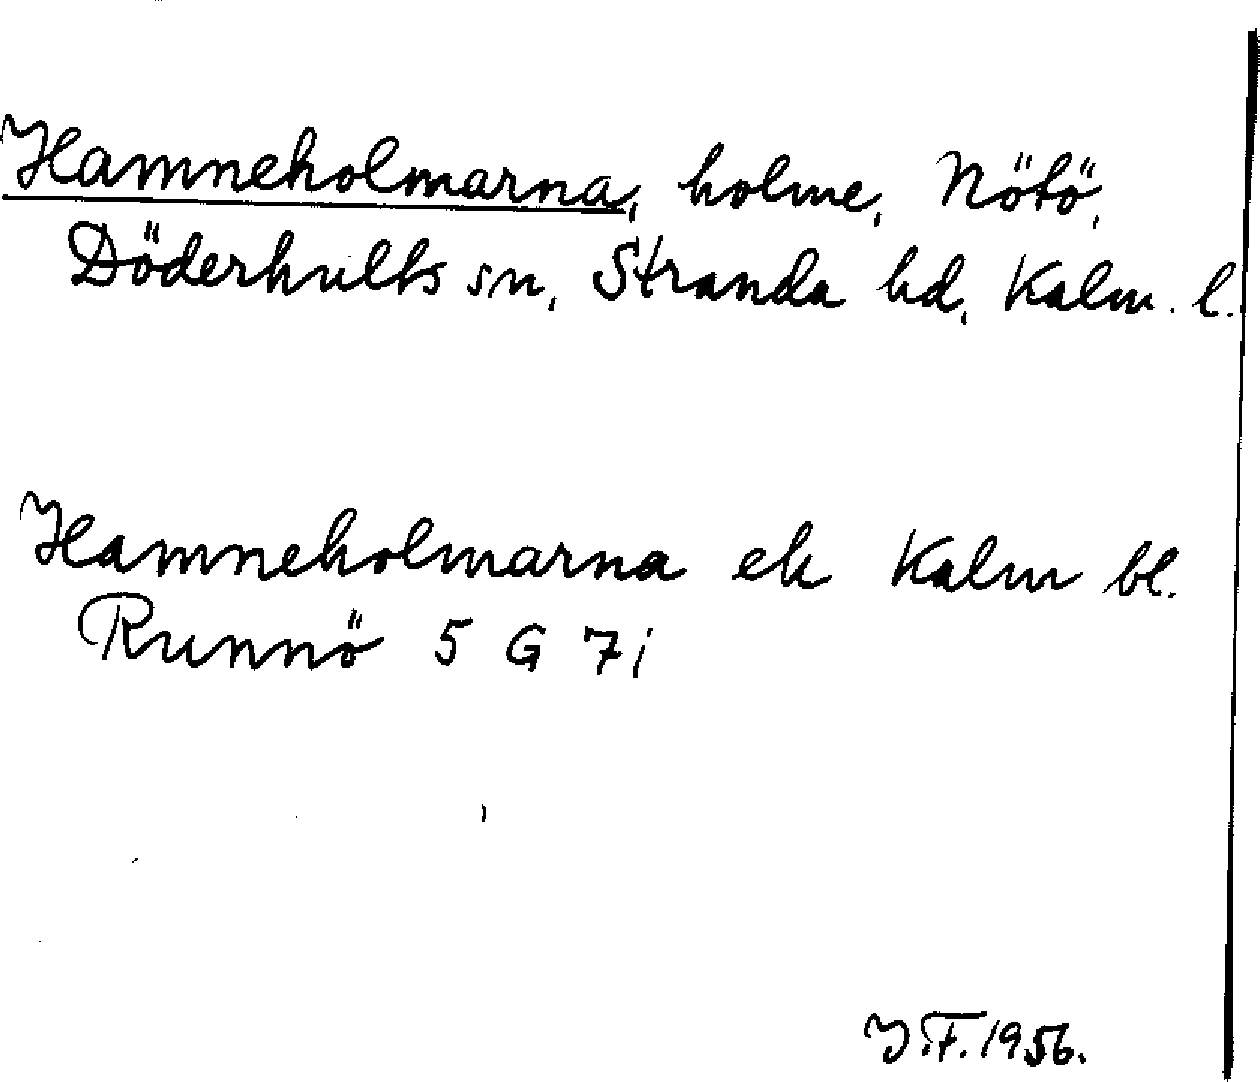 Hamneholmarna, holme, Nötö,
Döderhults sn, Stranda hd, Kalm. l.
Hamneholmarna ek Kalm bl.
Runnö 5 G 7i
Y.F. 1956.